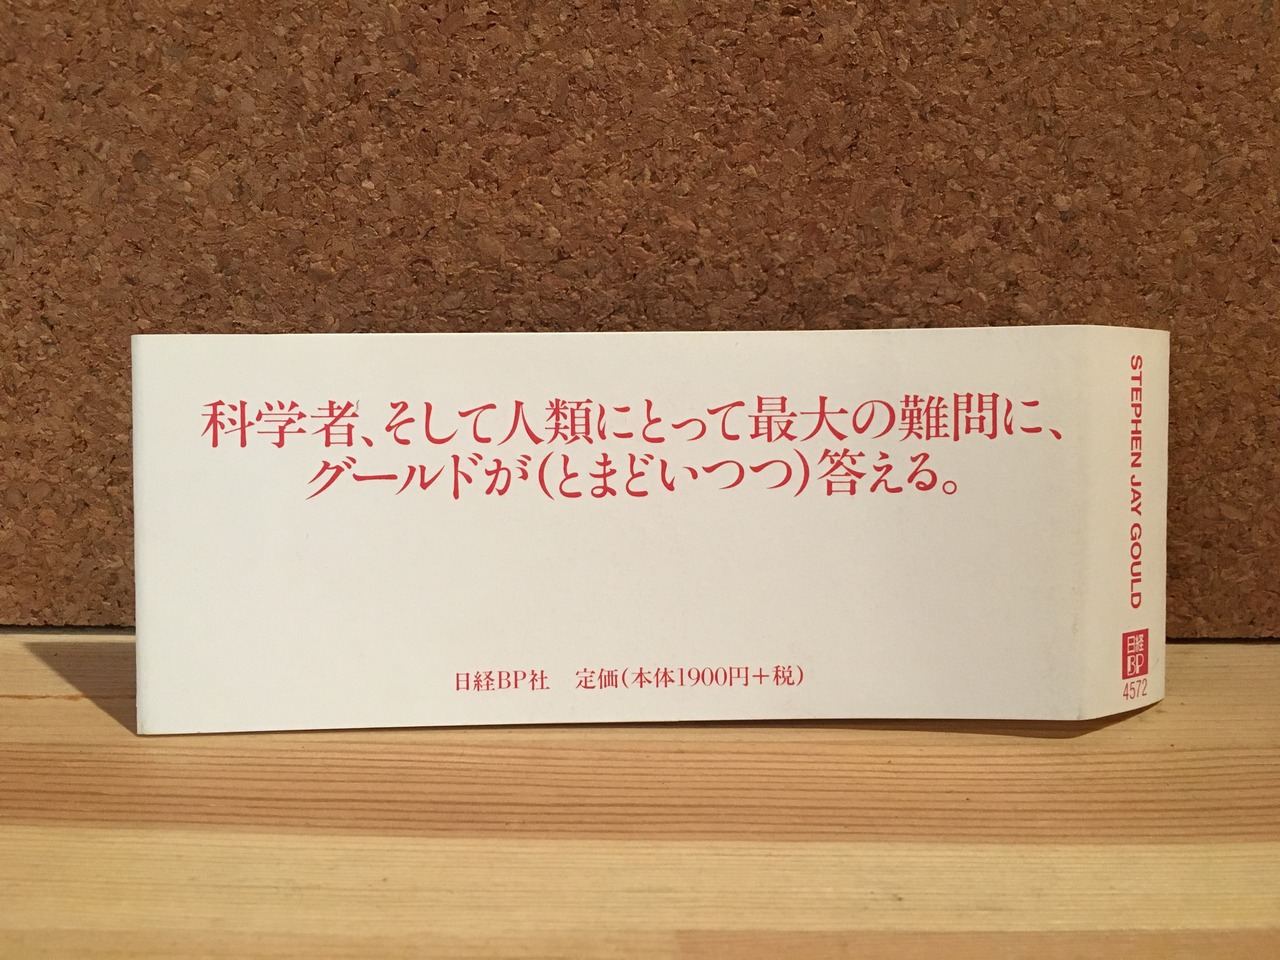 科学者、そして人類にとって最大の難問に、
グールドが(とまどいつつ)答える。
日経BP社　定価(本体1900円+税)
STEPHEN JAY GOULD
日経
BP
4572